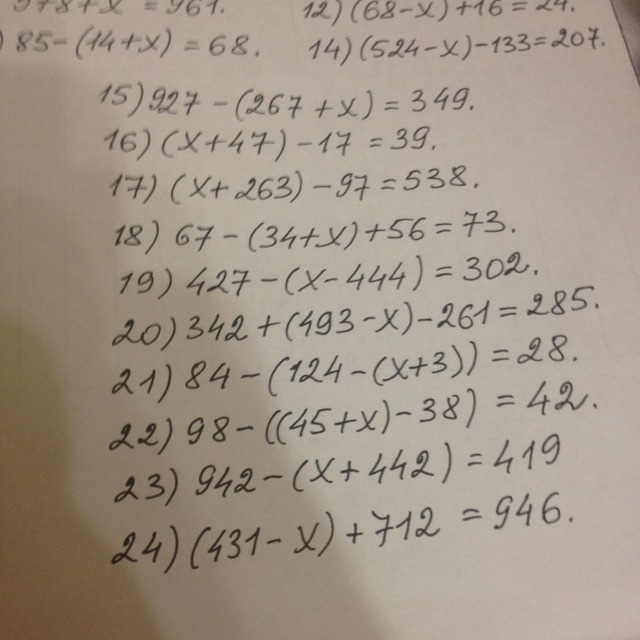 978+x = 961. 12) (68-x)+16 = 24.
) 85-(14+x) = 68. 14) (524-x)-133=207.
15) 927 - (267 + x) = 349.
16) (x+47) - 17 = 39.
17) (x+ 263) - 97 = 538.
18) 67 - (34+x) + 56 = 73.
19) 427 - (x - 444) = 302.
20) 342 + (493 - x) - 261 = 285.
21) 84 - (124 - (x+3)) = 28.
22) 98 - ((45+x) - 38) = 42.
23) 942 - (x + 442) = 419
24) (431 - x) + 712 = 946.